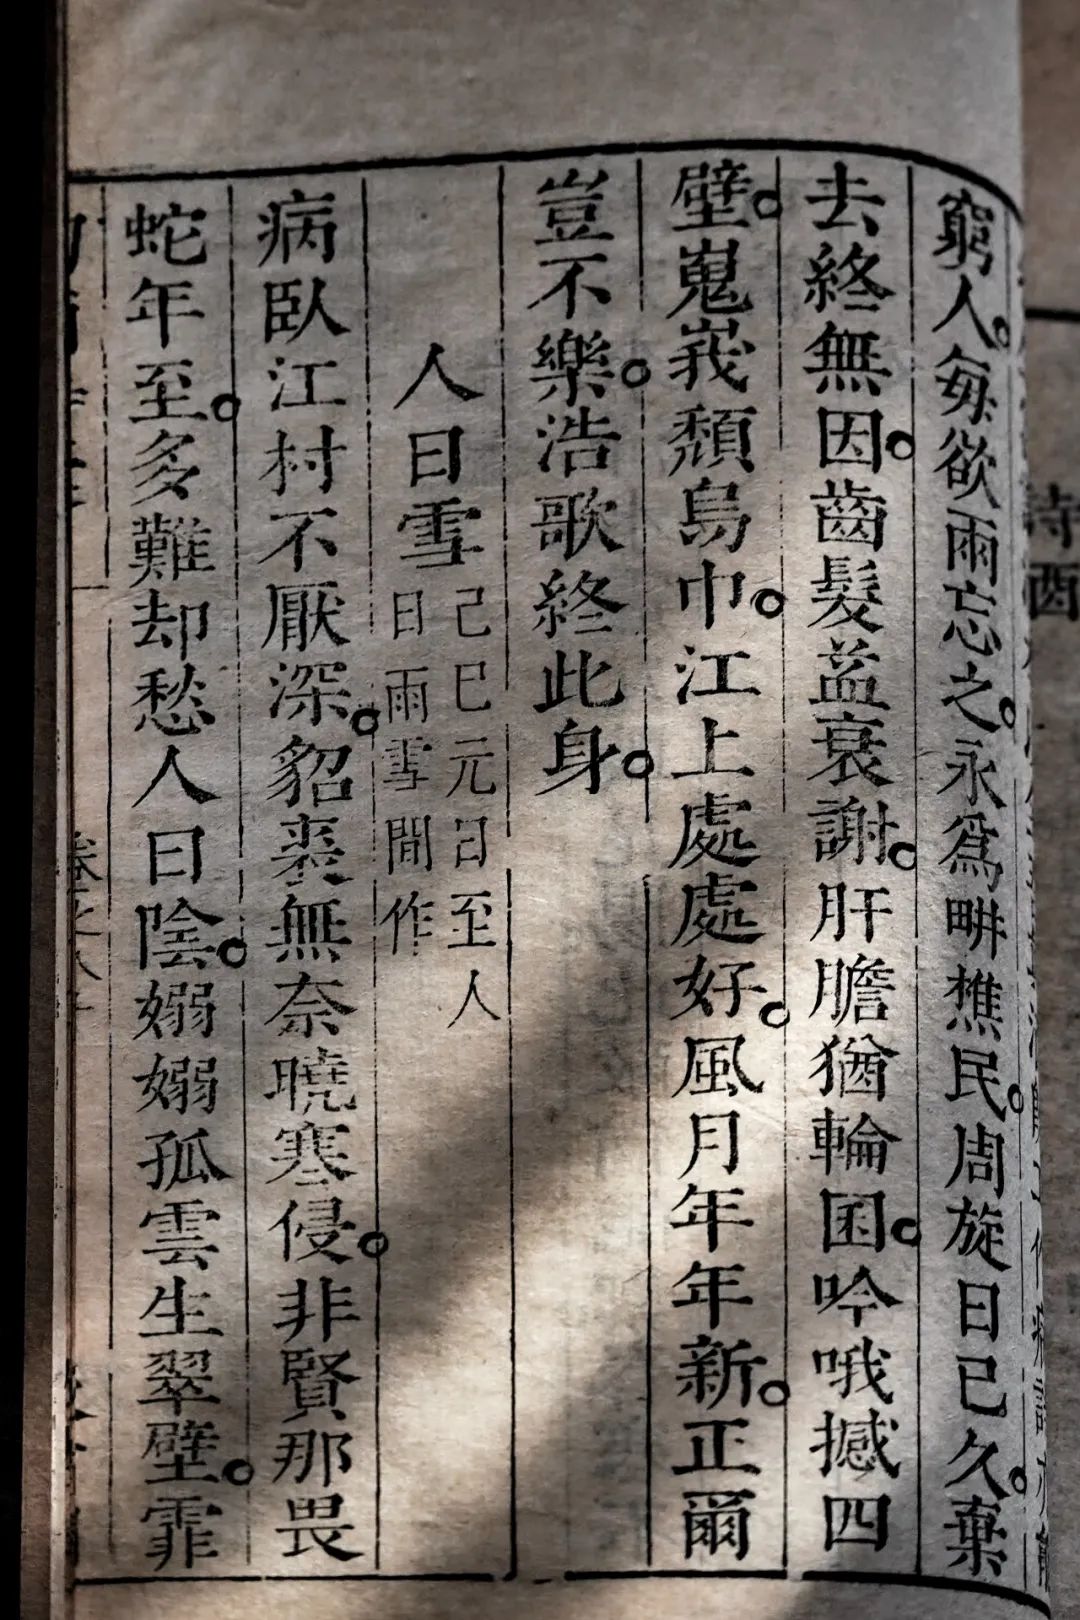 窮人。每欲兩忘之。永爲畊樵民。周旋日已久。棄
去終無因。齒髮益衰謝。肝膽猶輪囷。吟哦撼四
壁。嵬峩頹烏巾。江上處處好。風月年年新。正爾
豈不樂。浩歌終此身。
人日雪
己巳元日至人
日雨雪間作
病臥江村不厭深。貂裘無奈曉寒侵。非賢那畏
蛇年至。多難却愁人日陰。嫋嫋孤雲生翠壁。霏